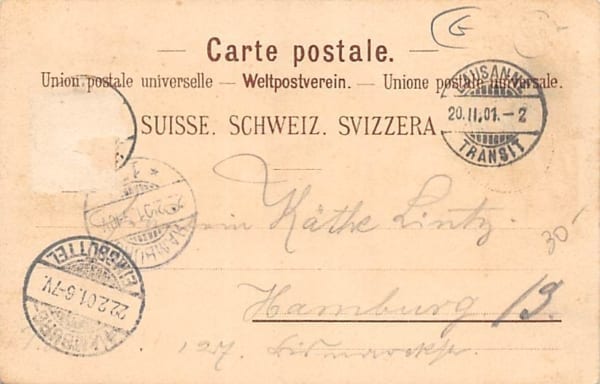 Carte postale.
Union postale universelle — Weltpostverein. — Unione postale universale.
SUISSE. SCHWEIZ. SVIZZERA
LAUSANNE
20.II.01.-2
TRANSIT
Käthe Lintz.
30
Hamburg
EIMSBÜTTEL
22.2.01.6-7V.
HAMBURG
127. Bismarckstr.